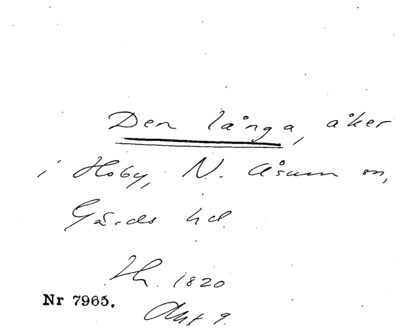 Den långa, åker
i Hoby, N. Åsum sn,
Gärds hd.
1820
Nr 7965.
Akt 9.